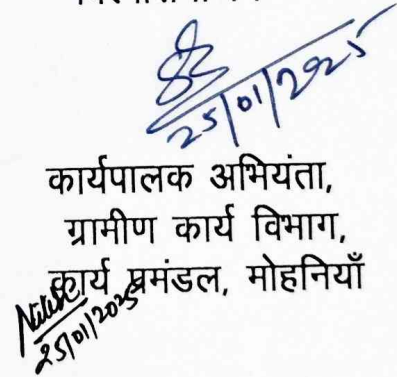 25/01/2025
कार्यपालक अभियंता,
ग्रामीण कार्य विभाग,
कार्य प्रमंडल, मोहनियाँ
25/01/2025